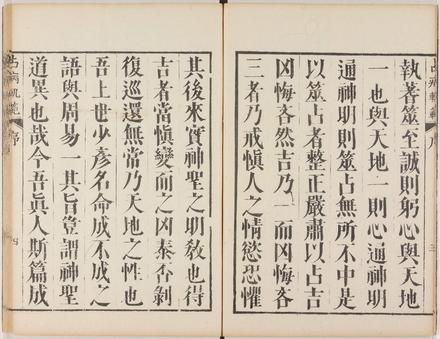 執蓍筮至誠則躬心與天地
一也與天地一則心通神明
通神明則筮占無所不中是
以筮占者整正嚴肅以占吉
凶悔吝然吉乃一而凶悔吝
三者乃戒慎人之情慾恐懼
其後來實神聖之明敎也得
吉者當愼變而之凶泰否剝
復巡還無常乃天地之性也
吾上世少彥名命成不成之
語與周易一其旨豈謂神聖
道異也哉今吾眞人斯篇成
占病軌範 序 四